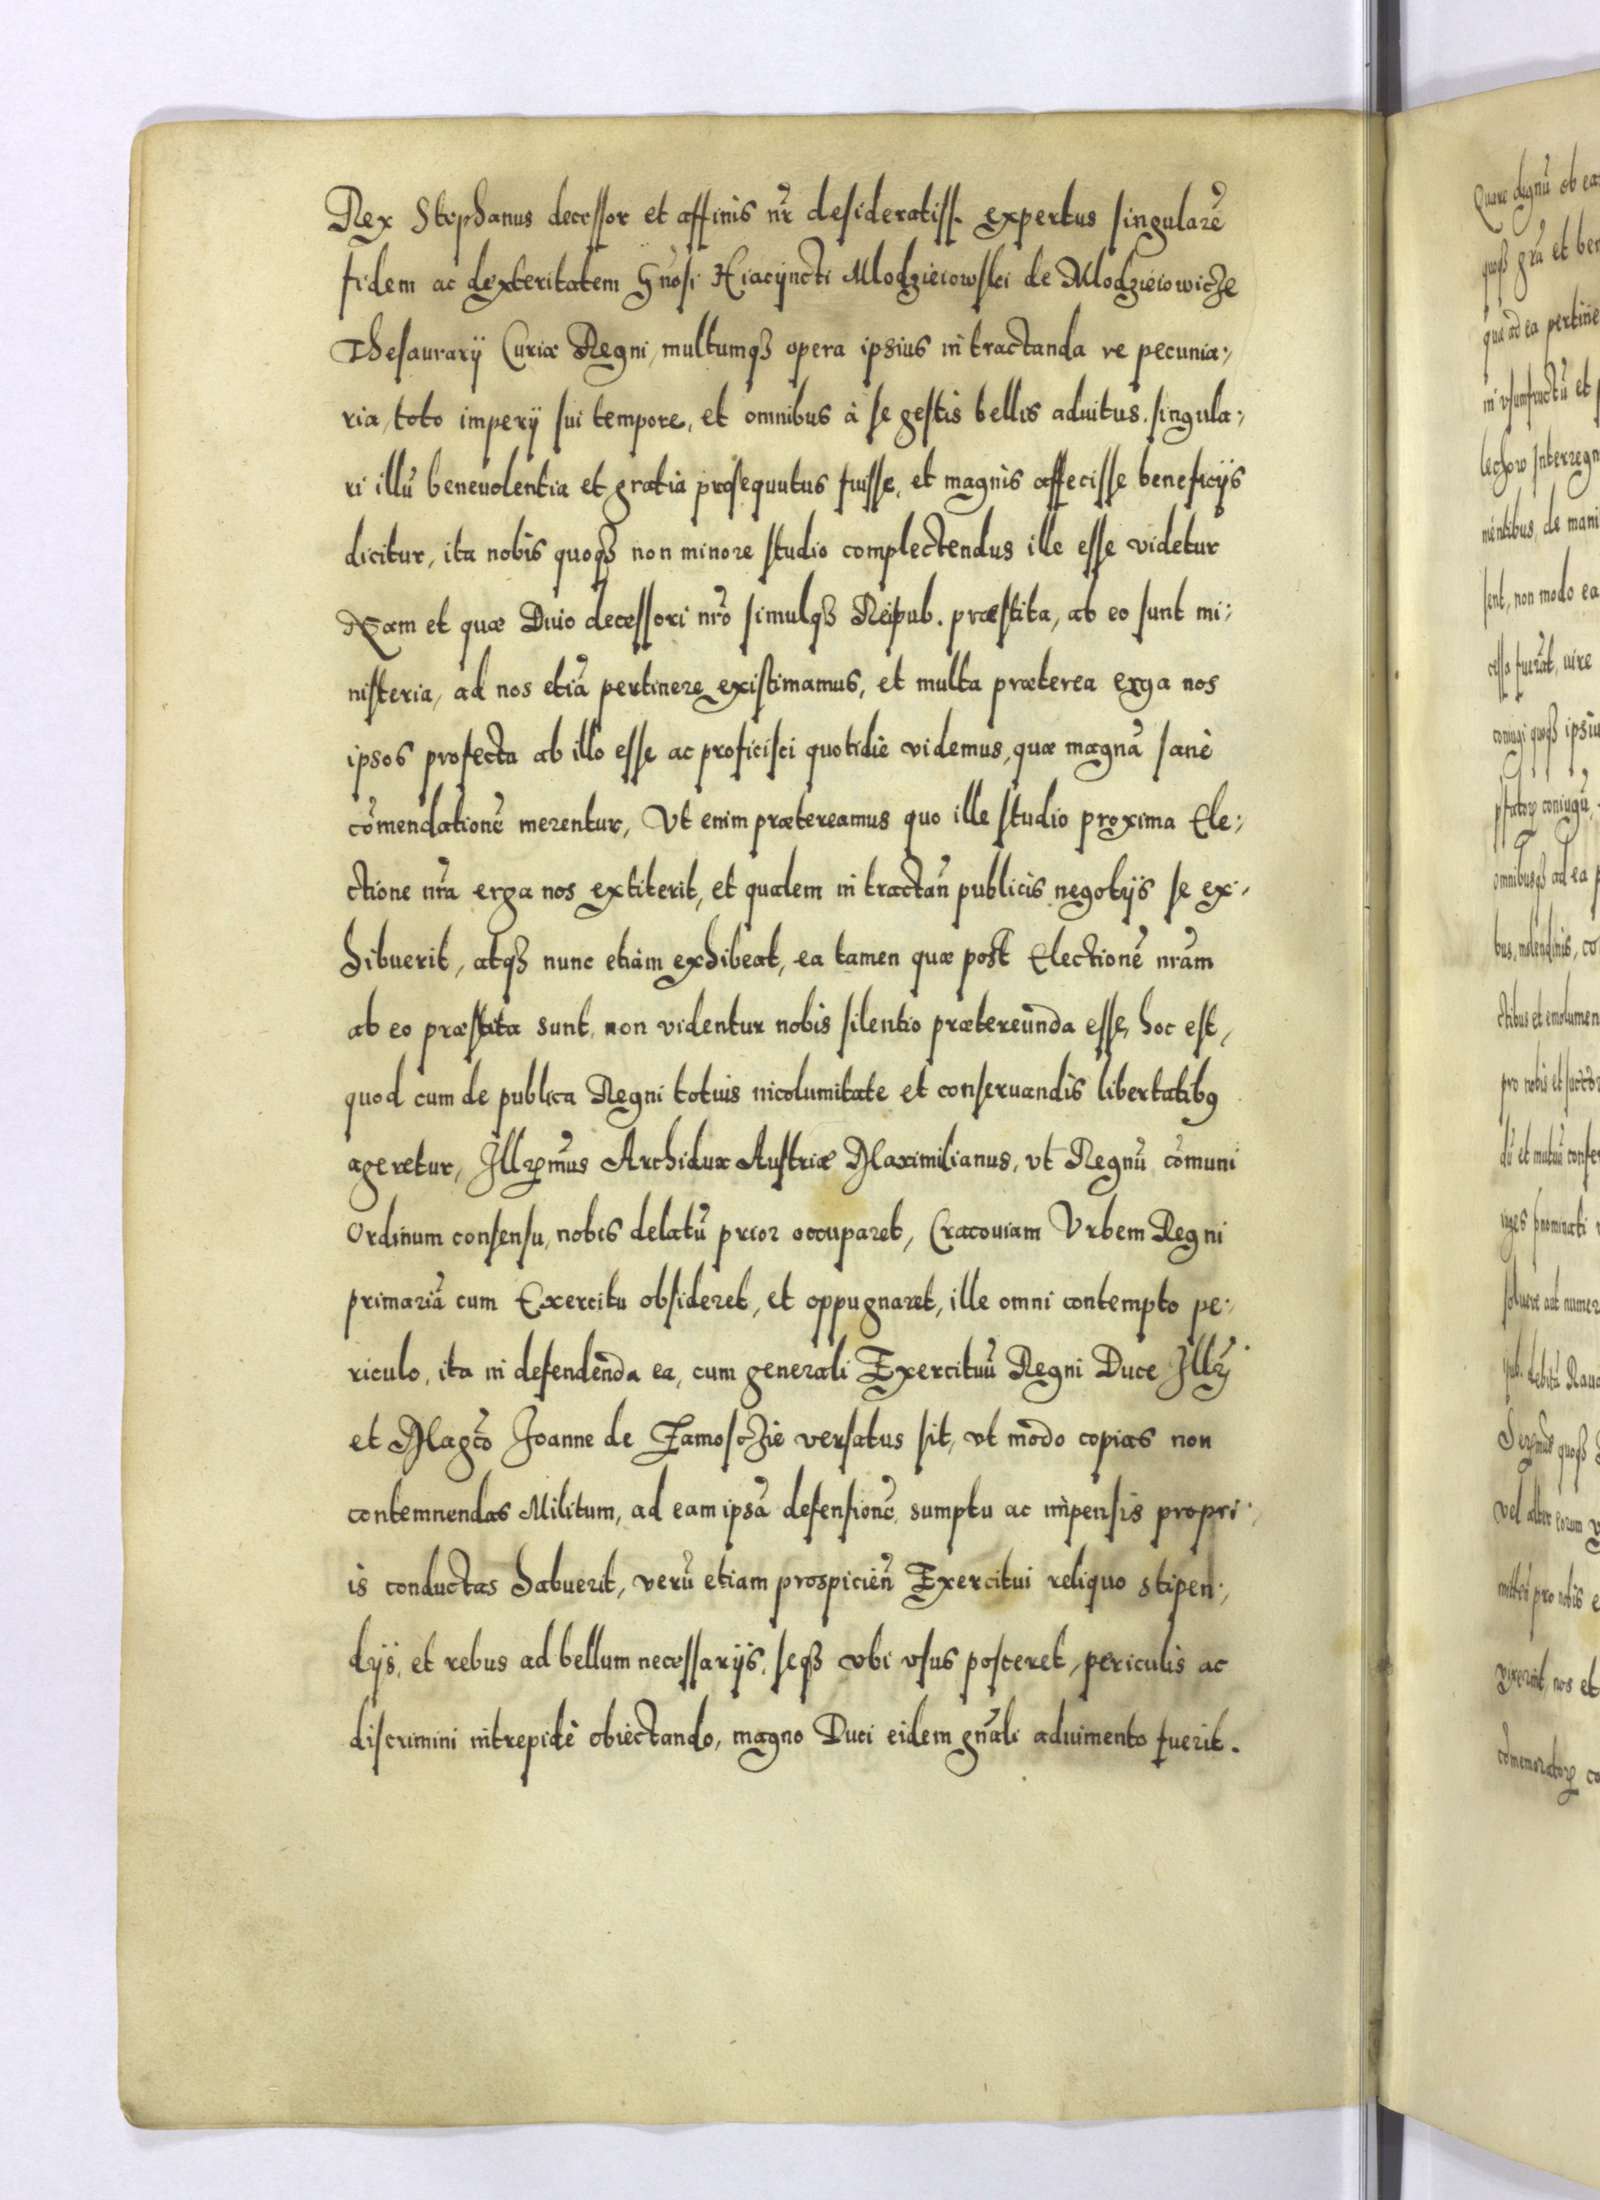 Rex Stephanus decessor et affinis nr̃ desideratiss. expertus singularẽ
fidem ac dexteritatem Gñosi Hiacÿncti Mlodzieiowski de Mlodzieiowicze
Thesaurarij Curiæ Regni, multumqꝫ opera ipsius in tractanda re pecunia:,
ria, toto imperij sui tempore, et omnibus à se gestis bellis adiutus. singula:,
ri illũ beneuolentia et gratia prosequutus fuisse, et magnis affecisse beneficijs
dicitur, ita nobis quoqꝫ non minore studio complectendus ille esse videtur
Nam et quæ Diuo decessori nr̃o simulqꝫ Reipub. præstita, ab eo sunt mi:,
nisteria, ad nos etiã pertinere existimamus, et multa præterea erga nos
ipsos profecta ab illo esse ac proficisci quotidiè videmus, quæ magnã sanè
cõmendationẽ merentur, Vt enim prætereamus quo ille studio proxima Ele:,
ctione nr̃a erga nos extiterit, et qualem in tractañ publicis negotijs se ex:,
hibuerit, atqꝫ nunc etiam exhibeat, ea tamen quæ post Electionẽ nr̃am
ab eo præstita sunt, non videntur nobis silentio prætereunda esse, hoc est,
quod cum de publica Regni totius incolumitate et conseruandis libertatibꝰ
ageretur, Illꝛmus Archidux Austriæ Maximilianus, vt Regnũ cõmuni
Ordinum consensu, nobis delatũ prior occuparet, Cracouiam Vrbem Regni
primariã cum Exercitu obsideret, et oppugnaret, ille omni contempto pe:,
riculo, ita in defendenda ea, cum generali Exercituũ Regni Duce Illꝛi
et Magc̃o Joanne de Zamosczie versatus sit, vt modo copias non
contemnendas Militum, ad eam ipsã defensionẽ, sumptu ac impensis propri:,
is conductas habuerit, verũ etiam prospicieñ Exercitui reliquo stipen:,
dijs, et rebus ad bellum necessarijs, seqꝫ vbi vsus posceret, periculis ac
discrimini intrepidè obiectando, magno Duci eidem gñali adiumento fuerit.
Quare dignũ ob ea
quoqꝫ gr̃a et ben
in vsumfructũ et
lechow Interregn
mentibus, de mani
sent, non modo ea
coniugi quoqꝫ ipsiu
omnibusqꝫ ad ea p
bus, molendinis, co
ctibus et emolumen
pro nobis et succo
dũ et mutuũ conse
soluere aut numer
vel alter eorum
mitteñ pro nobis e
vixerint, nos et
cõmemorator co